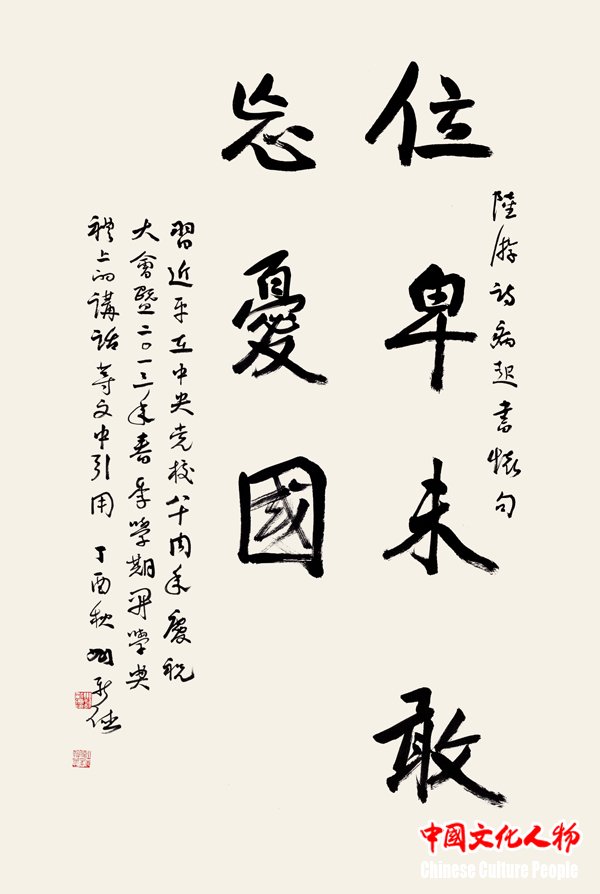 陸游詩病起書懷句
位卑未敢
忘憂國
習近平在中央党校八十周年慶祝
大會暨二〇一三年春季學期開學典
禮上的講話等文中引用 丁酉秋
中國文化人物
Chinese Culture People